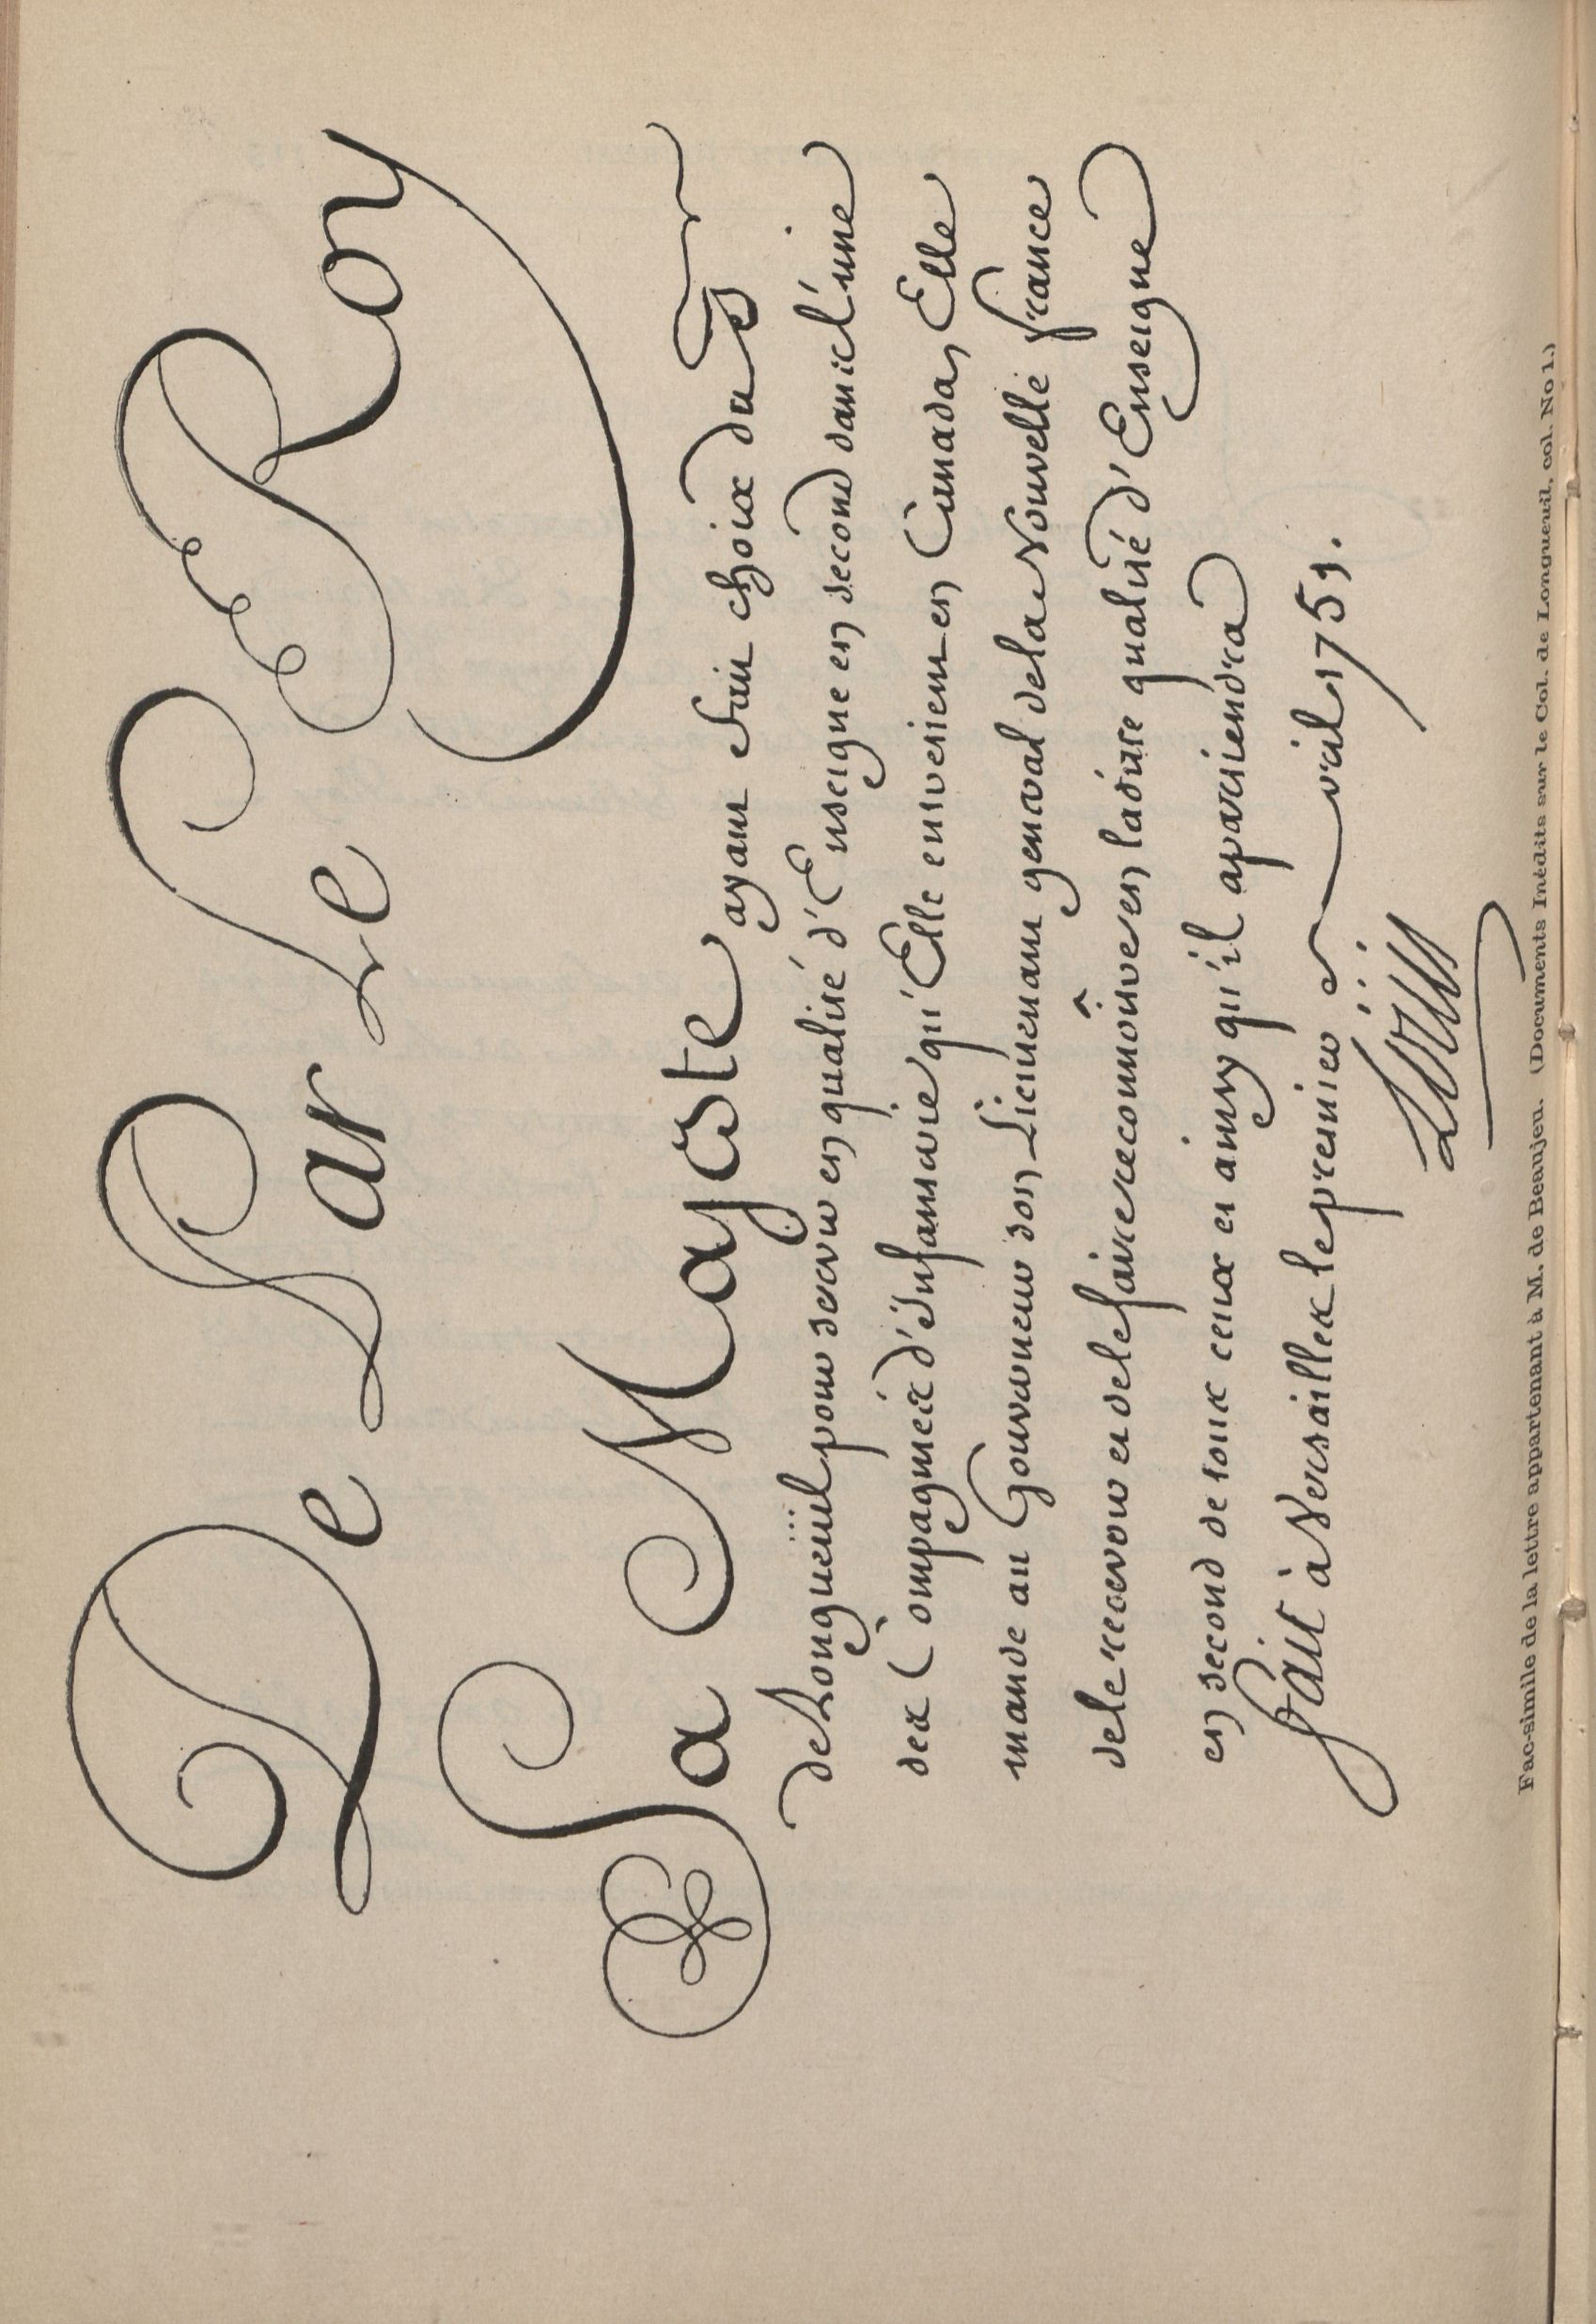 De Par Le Roy
Sa Majesté ayant fait choix du Sr
de Longueüil pour servir en qualité d'Enseigne en second dans l'une
des Compagnies d'Infanterie qu'Elle entretient en Canada, Elle
mande au Gouverneur son Lieutenant general de la Nouvelle france
de le recevoir et de le faire reconnoître en ladite qualité d'Enseigne
en second de tous ceux et ainsy qu'il apartiendra
Fait à Versailles le premier avril 1751.
Louis
Fac-simile de la lettre appartenant à M. de Beaujeu. (Documents Inédits sur le Col. de Longueuil, col. No 1.)